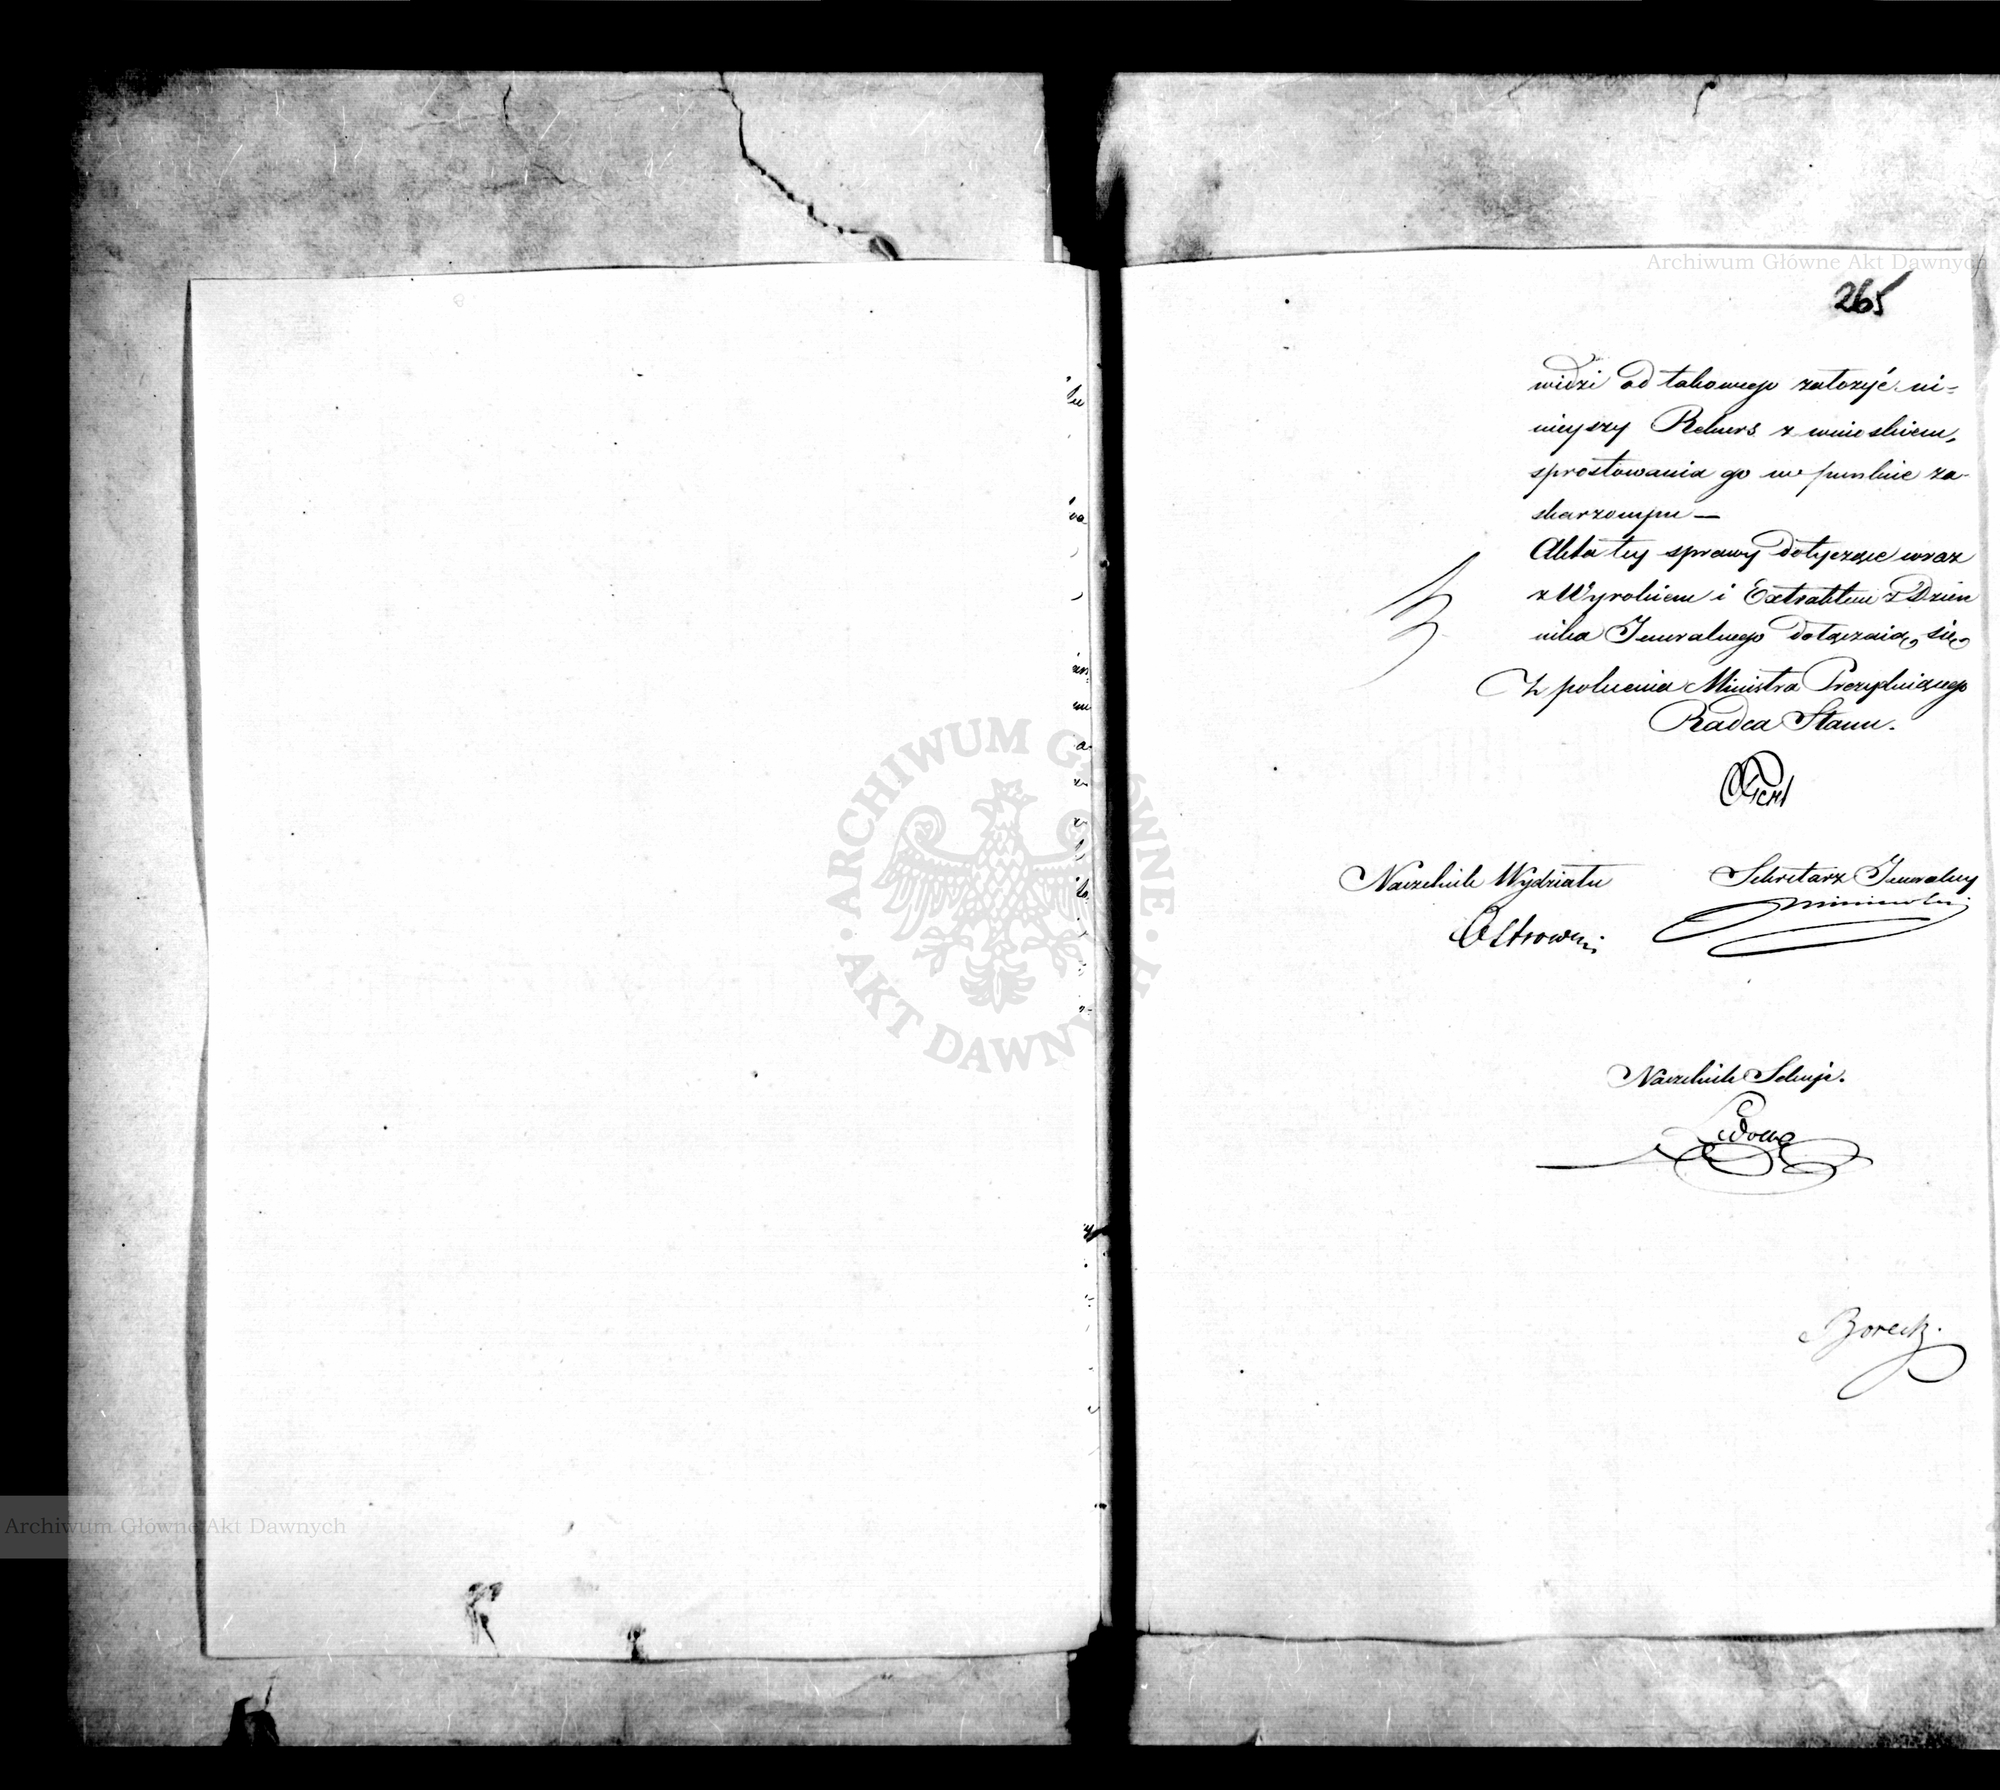 Archiwum Główne Akt Dawnych
265
widzi od takowego założyć ni=
nieyszy Rekurs z wnioskiem,
sprostowania go we punkcie za-
skarzonym —
Akta tey sprawy dotyczące wraz
z Wyrokiem i Extraktem z Dzien
nika Jeneralnego dołączaią się
Z polecenia Ministra Prezyduiącego
Radca Stanu.
Naczelnik Wydziału Sekretarz Jeneralny
Ostrowski
Naczelnik Sekcyi.
Borecki
ARCHIWUM GŁÓWNE · AKT DAWNYCH ·
Archiwum Główne Akt Dawnych